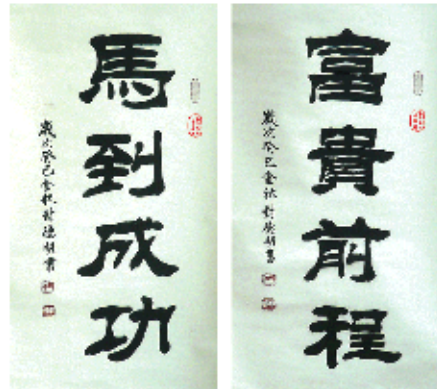 馬到成功
歲次癸巳金秋
富貴前程
歲次癸巳金秋